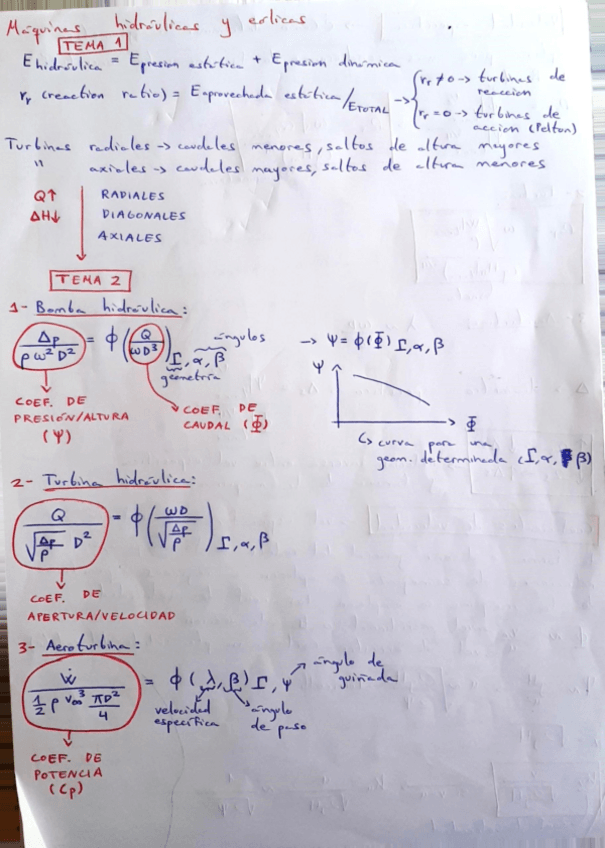 Máquinas hidráulicas y eólicas
TEMA 1
E hidráulica = E presion estática + E presion dinámica
rr (reaction ratio) = E aprovechada estática / E TOTAL → { rr ≠ 0 → turbinas de reaccion
rr = 0 → turbinas de accion (Pelton)
Turbinas radiales → caudales menores, saltos de altura mayores
" axiales → caudales mayores, saltos de altura menores
Q↑ RADIALES
ΔH↓ DIAGONALES
AXIALES
TEMA 2
1- Bomba hidráulica:
Δp / ρω²D² = ϕ (Q / ωD³) Γ, α, β
ángulos
geometría
COEF. DE PRESIÓN/ALTURA (Ψ)
COEF. DE CAUDAL (Φ)
→ Ψ = ϕ(Φ) Γ, α, β
Ψ
Φ
↳ curva para una
geom. determinada (Γ, α, β)
2- Turbina hidráulica:
Q / √(Δp/ρ) D² = ϕ (ωD / √(Δp/ρ)) Γ, α, β
COEF. DE
APERTURA/VELOCIDAD
3- Aeroturbina:
Ẇ / ½ ρ V∞³ πD²/4 = ϕ (λ, β) Γ, Ψ
ángulo de guiñada
velocidad específica
ángulo de paso
COEF. DE
POTENCIA
(Cp)